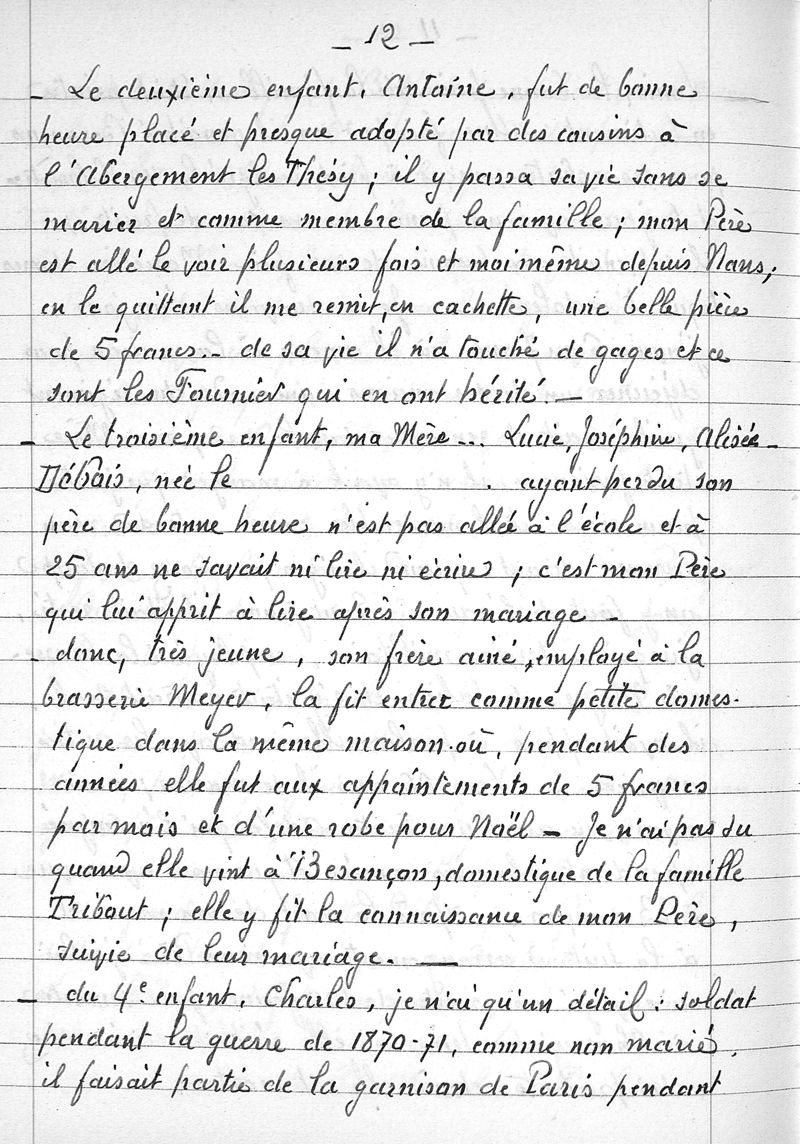 – 12 –
– Le deuxième enfant, Antoine, fut de bonne
heure placé et presque adopté par des cousins à
l'Abergement les Thésy ; il y passa sa vie sans se
marier et comme membre de la famille ; mon Père
est allé le voir plusieurs fois et moi même depuis Nans,
en le quittant il me remit, en cachette, une belle pièce
de 5 francs.. de sa vie il n'a touché de gages et ce
sont les Fournier qui en ont hérité. —
– Le troisième enfant, ma Mère... Lucie, Joséphine, Alisée –
Débois, née le . ayant perdu son
père de bonne heure n'est pas allée à l'école et à
25 ans ne savait ni lire ni écrire ; c'est mon Père
qui lui apprit à lire après son mariage –
– donc, très jeune, son frère ainé, employé à la
brasserie Meyer, la fit entrer comme petite domes-
tique dans la même maison où, pendant des
années elle fut aux appointements de 5 francs
par mois et d'une robe pour Noël – Je n'ai pas su
quand elle vint à Besançon, domestique de la famille
Tribout ; elle y fit la connaissance de mon Père,
suivie de leur mariage. —
– du 4e enfant, Charles, je n'ai qu'un détail : soldat
pendant la guerre de 1870-71, comme non marié,
il faisait partie de la garnison de Paris pendant